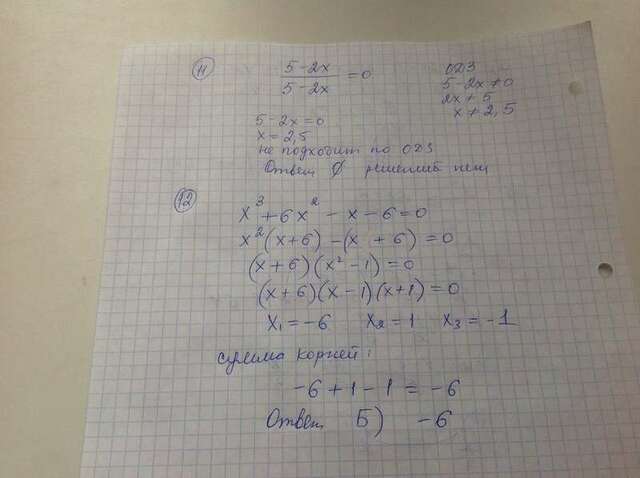 11
5-2x / 5-2x = 0
ОДЗ
5-2x≠0
2x≠5
x≠2,5
5-2x=0
x=2,5
не подходит по ОДЗ
Ответ ∅ решений нет
12
x³+6x²-x-6=0
x²(x+6)-(x+6)=0
(x+6)(x²-1)=0
(x+6)(x-1)(x+1)=0
x₁=-6 x₂=1 x₃=-1
сумма корней:
-6+1-1=-6
Ответ Б) -6